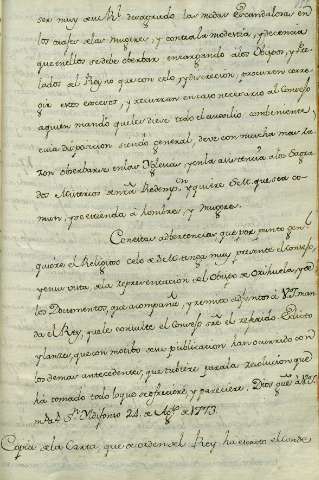 ser muy del Rl. desagrado las modas escandalosas en
los trajes de las mugeres, y contra la modestia, y decencia
que en ellos se debe observar encargando a los Obispos, y Pre
lados del Reyno que con celo, y discrecion, procuren corre
gir estos excesos, y recurran en caso necesario al Consejo
a quien mando que les diese todo el auxilio combeniente
cuia disposicion siendo general, deve con mucha mas ra
zon observarse en las Yglesias, y en la asistencia a los Sagra
dos Misterios de nra. Redempn. y quiere S.M. que sea co
mun, y se estienda a hombres, y mugeres.
Con estas advertencias que por punto gen
quiere el Religioso celo de S.M. tenga muy presente el Consejo,
y en su vista, de la representacion del Obispo de Orihuela, y de
los Documentos, que acompaña, y remito adjuntos a V.I. man
da el Rey, que le consulte el Consejo sre. el referido Edicto
y lances, que con motivo de su publicacion han ocurrido con
los demas antecedentes, que tubiere para la resolucion que
ha tomado todo lo que se ofreciere y pareciere. Dios gue. a V.I.
ms. as. Sn. Yldefonso 24. de Agto. de 1773.
Copia de la Carta, que de orden del Rey ha escrito el Conde